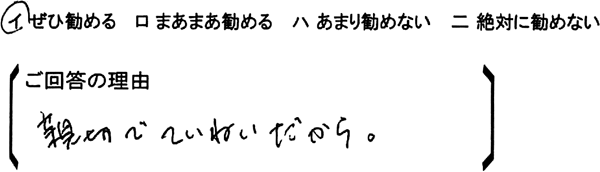 イ ぜひ勧める ロ まあまあ勧める ハ あまり勧めない ニ 絶対に勧めない
ご回答の理由
親切でていねいだから。